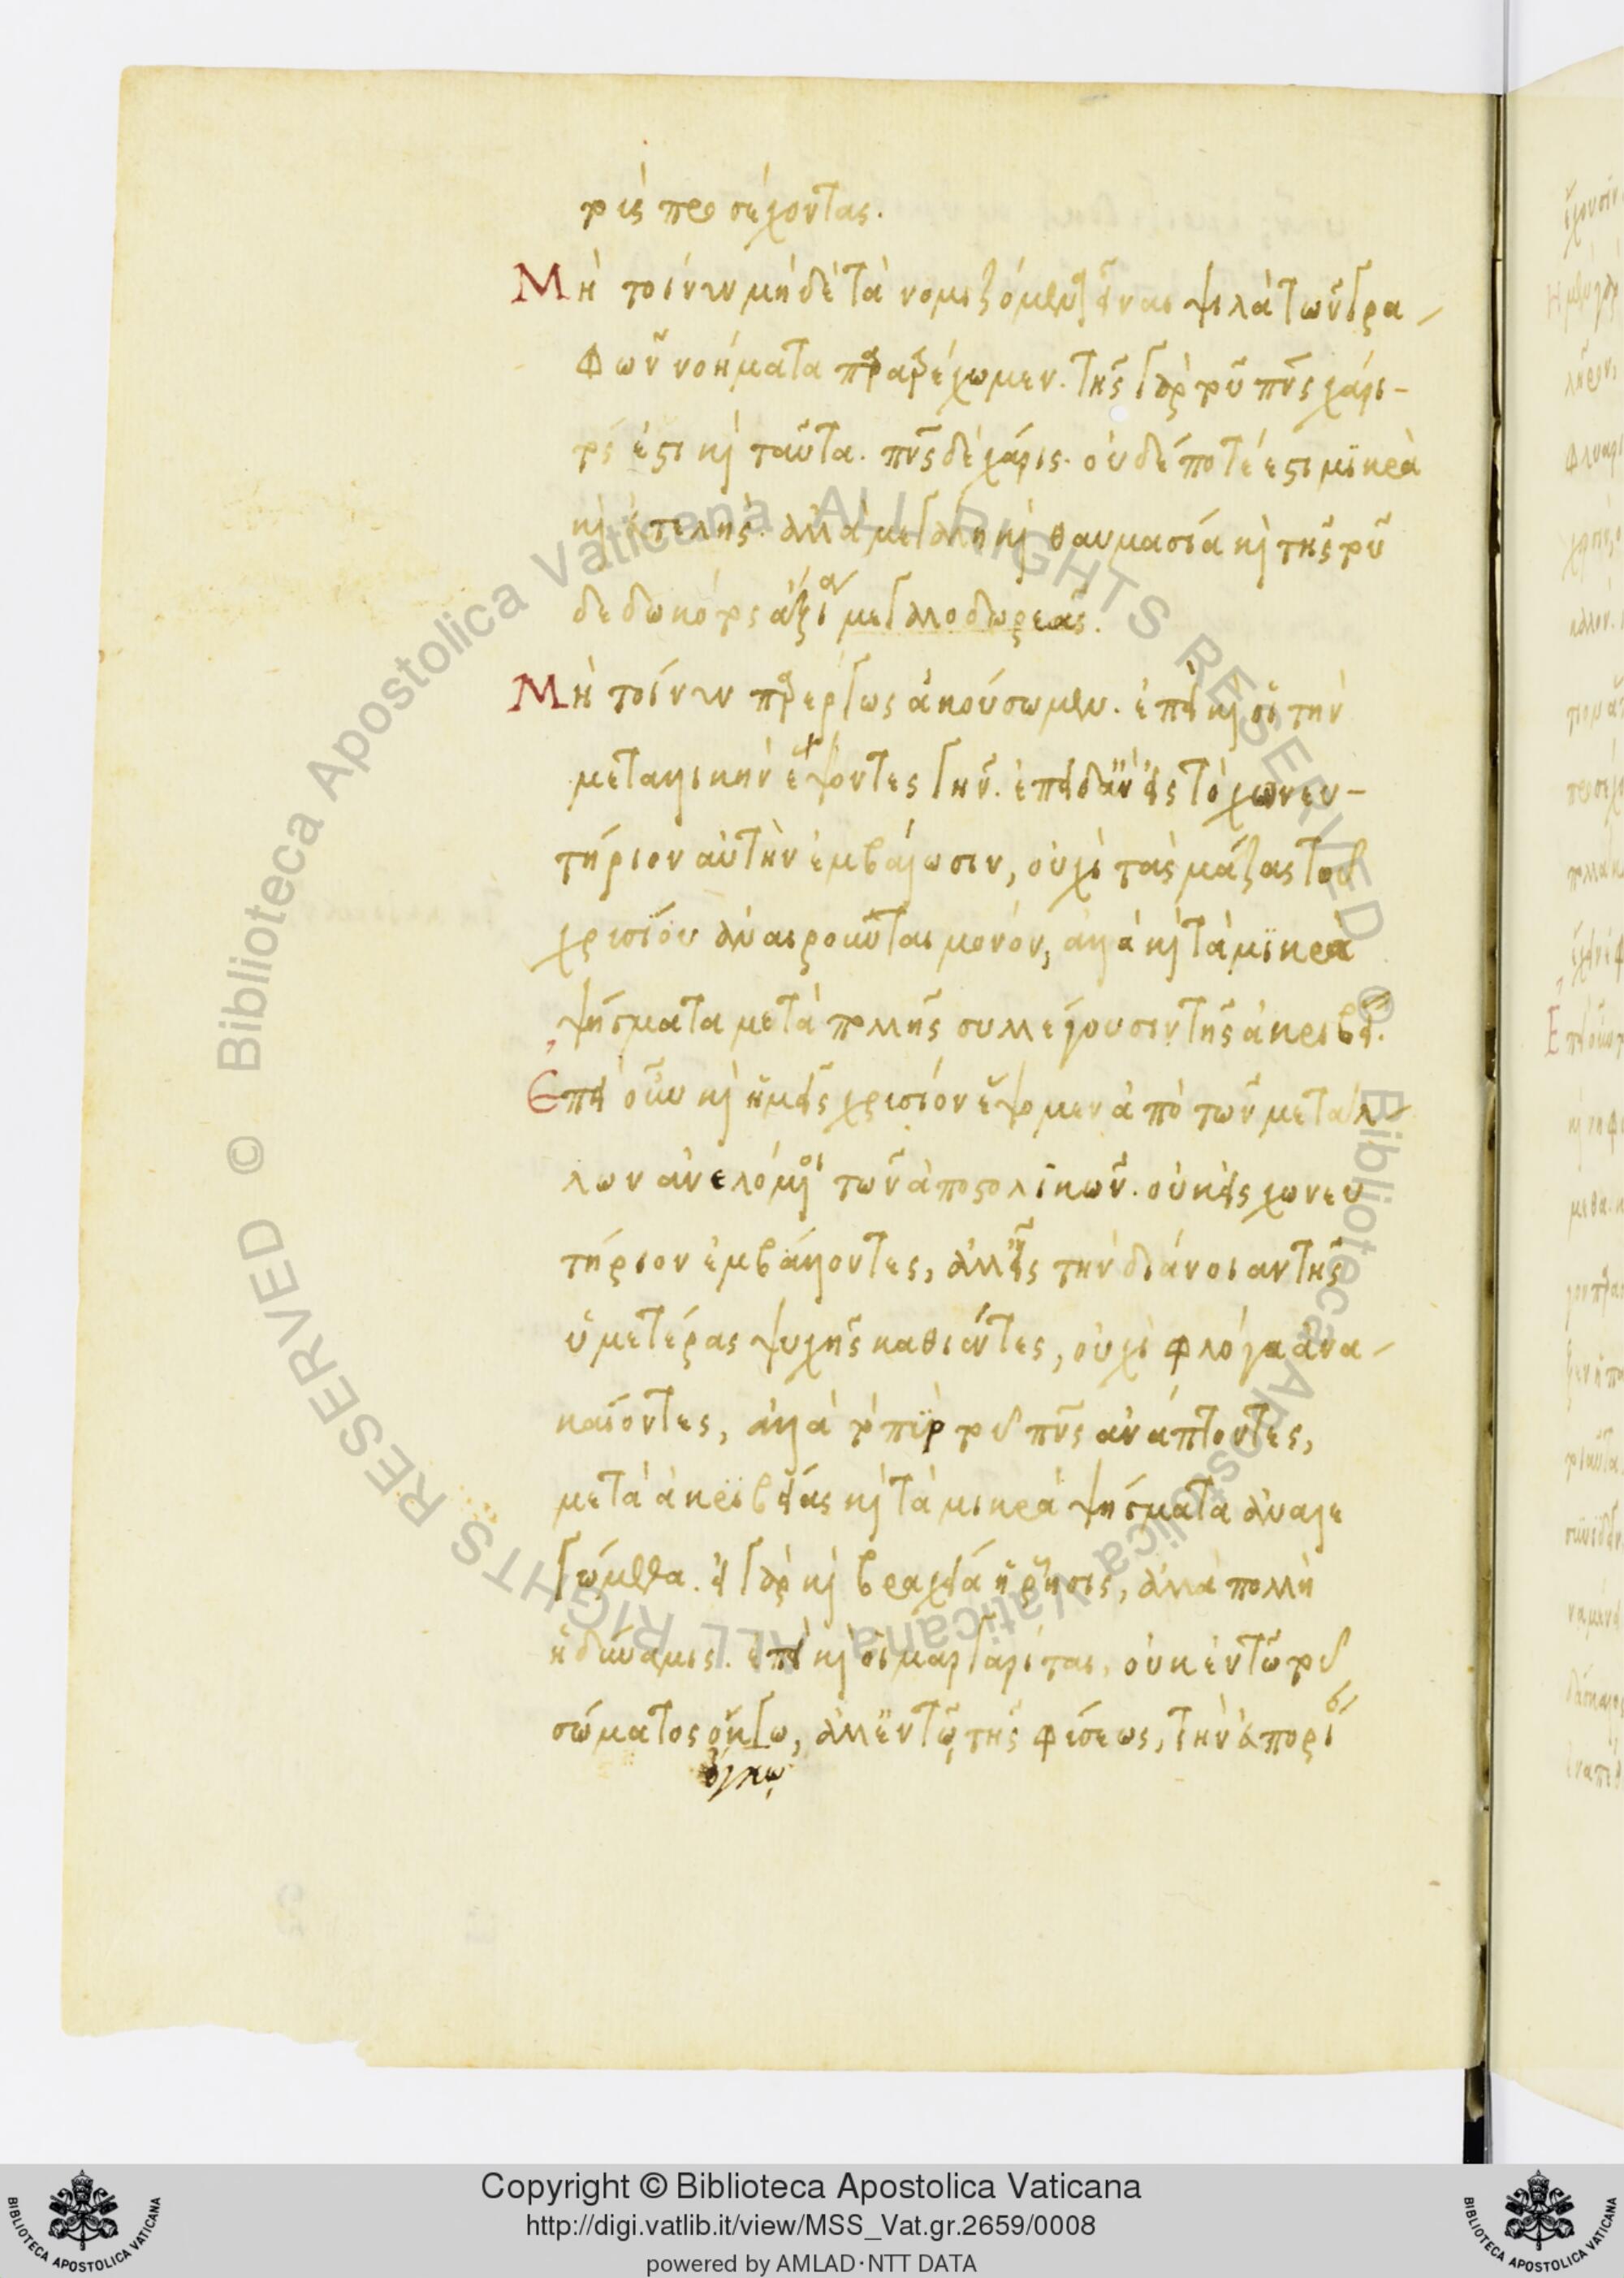 τοῖς προσέχοντας.
Μὴ τοίνυν μηδὲ τὰ νομιζόμενα εἶναι ψιλὰ τῶν γρα-
φῶν νοήματα παρατρέχωμεν. τῆς γὰρ τοῦ πνς χάρι-
τός ἐστι καὶ ταῦτα. πνς δὲ χάρις. οὐδέποτέ ἐστι μικρὰ
καὶ εὐτελής. ἀλλὰ μεγάλη καὶ θαυμασία καὶ τῆς τοῦ
δεδωκότος ἀξία μεγαλοδωρεᾶς.
Μὴ τοίνυν παρέργως ἀκούσωμεν. ἐπεὶ καὶ οἱ τὴν
μεταλλικὴν ἕψοντες γῆν. ἐπειδὰν εἰς τὸ χωνευ-
τήριον αὐτὴν ἐμβάλωσιν, οὐχὶ τὰς μάζας τοῦ
χρυσίου ἀναιροῦνται μόνον, ἀλλὰ καὶ τὰ μικρὰ
ψήγματα μετὰ πολλῆς συλλέγουσιν τῆς ἀκριβείας.
Ἐπεὶ οὖν καὶ ἡμεῖς χρυσίον ἕψομεν ἀπὸ τῶν μετάλ-
λων ἀνελόμενοι τῶν ἀποστολικῶν. οὐκ εἰς χωνευ
τήριον ἐμβάλλοντες, ἀλλ' εἰς τὴν διάνοιαν τῆς
ὑμετέρας ψυχῆς καθιέντες, οὐχὶ φλόγα ἀνα-
καίοντες, ἀλλὰ τὸ πῦρ τοῦ πνς ἀνάπτοντες,
μετὰ ἀκριβείας καὶ τὰ μικρὰ ψήγματα ἀναλε
γώμεθα. εἰ γὰρ καὶ βραχεῖα ἡ ῥῆσις, ἀλλὰ πολλὴ
ἡ δύναμις. ἐπεὶ καὶ οἱ μαργαρίται, οὐκ ἐν τῷ τοῦ
σώματος οἴκγω, ἀλλ' ἐν τῷ τῆς φύσεως, τὴν εὐπορί
ὄγκῳ
Copyright © Biblioteca Apostolica Vaticana
http://digi.vatlib.it/view/MSS_Vat.gr.2659/0008
powered by AMLAD·NTT DATA
BIBLIOTECA APOSTOLICA VATICANA
BIBLIOTECA APOSTOLICA VATICANA
Biblioteca Apostolica Vaticana ALL RIGHTS RESERVED ©
Biblioteca Apostolica Vaticana ALL RIGHTS RESERVED ©